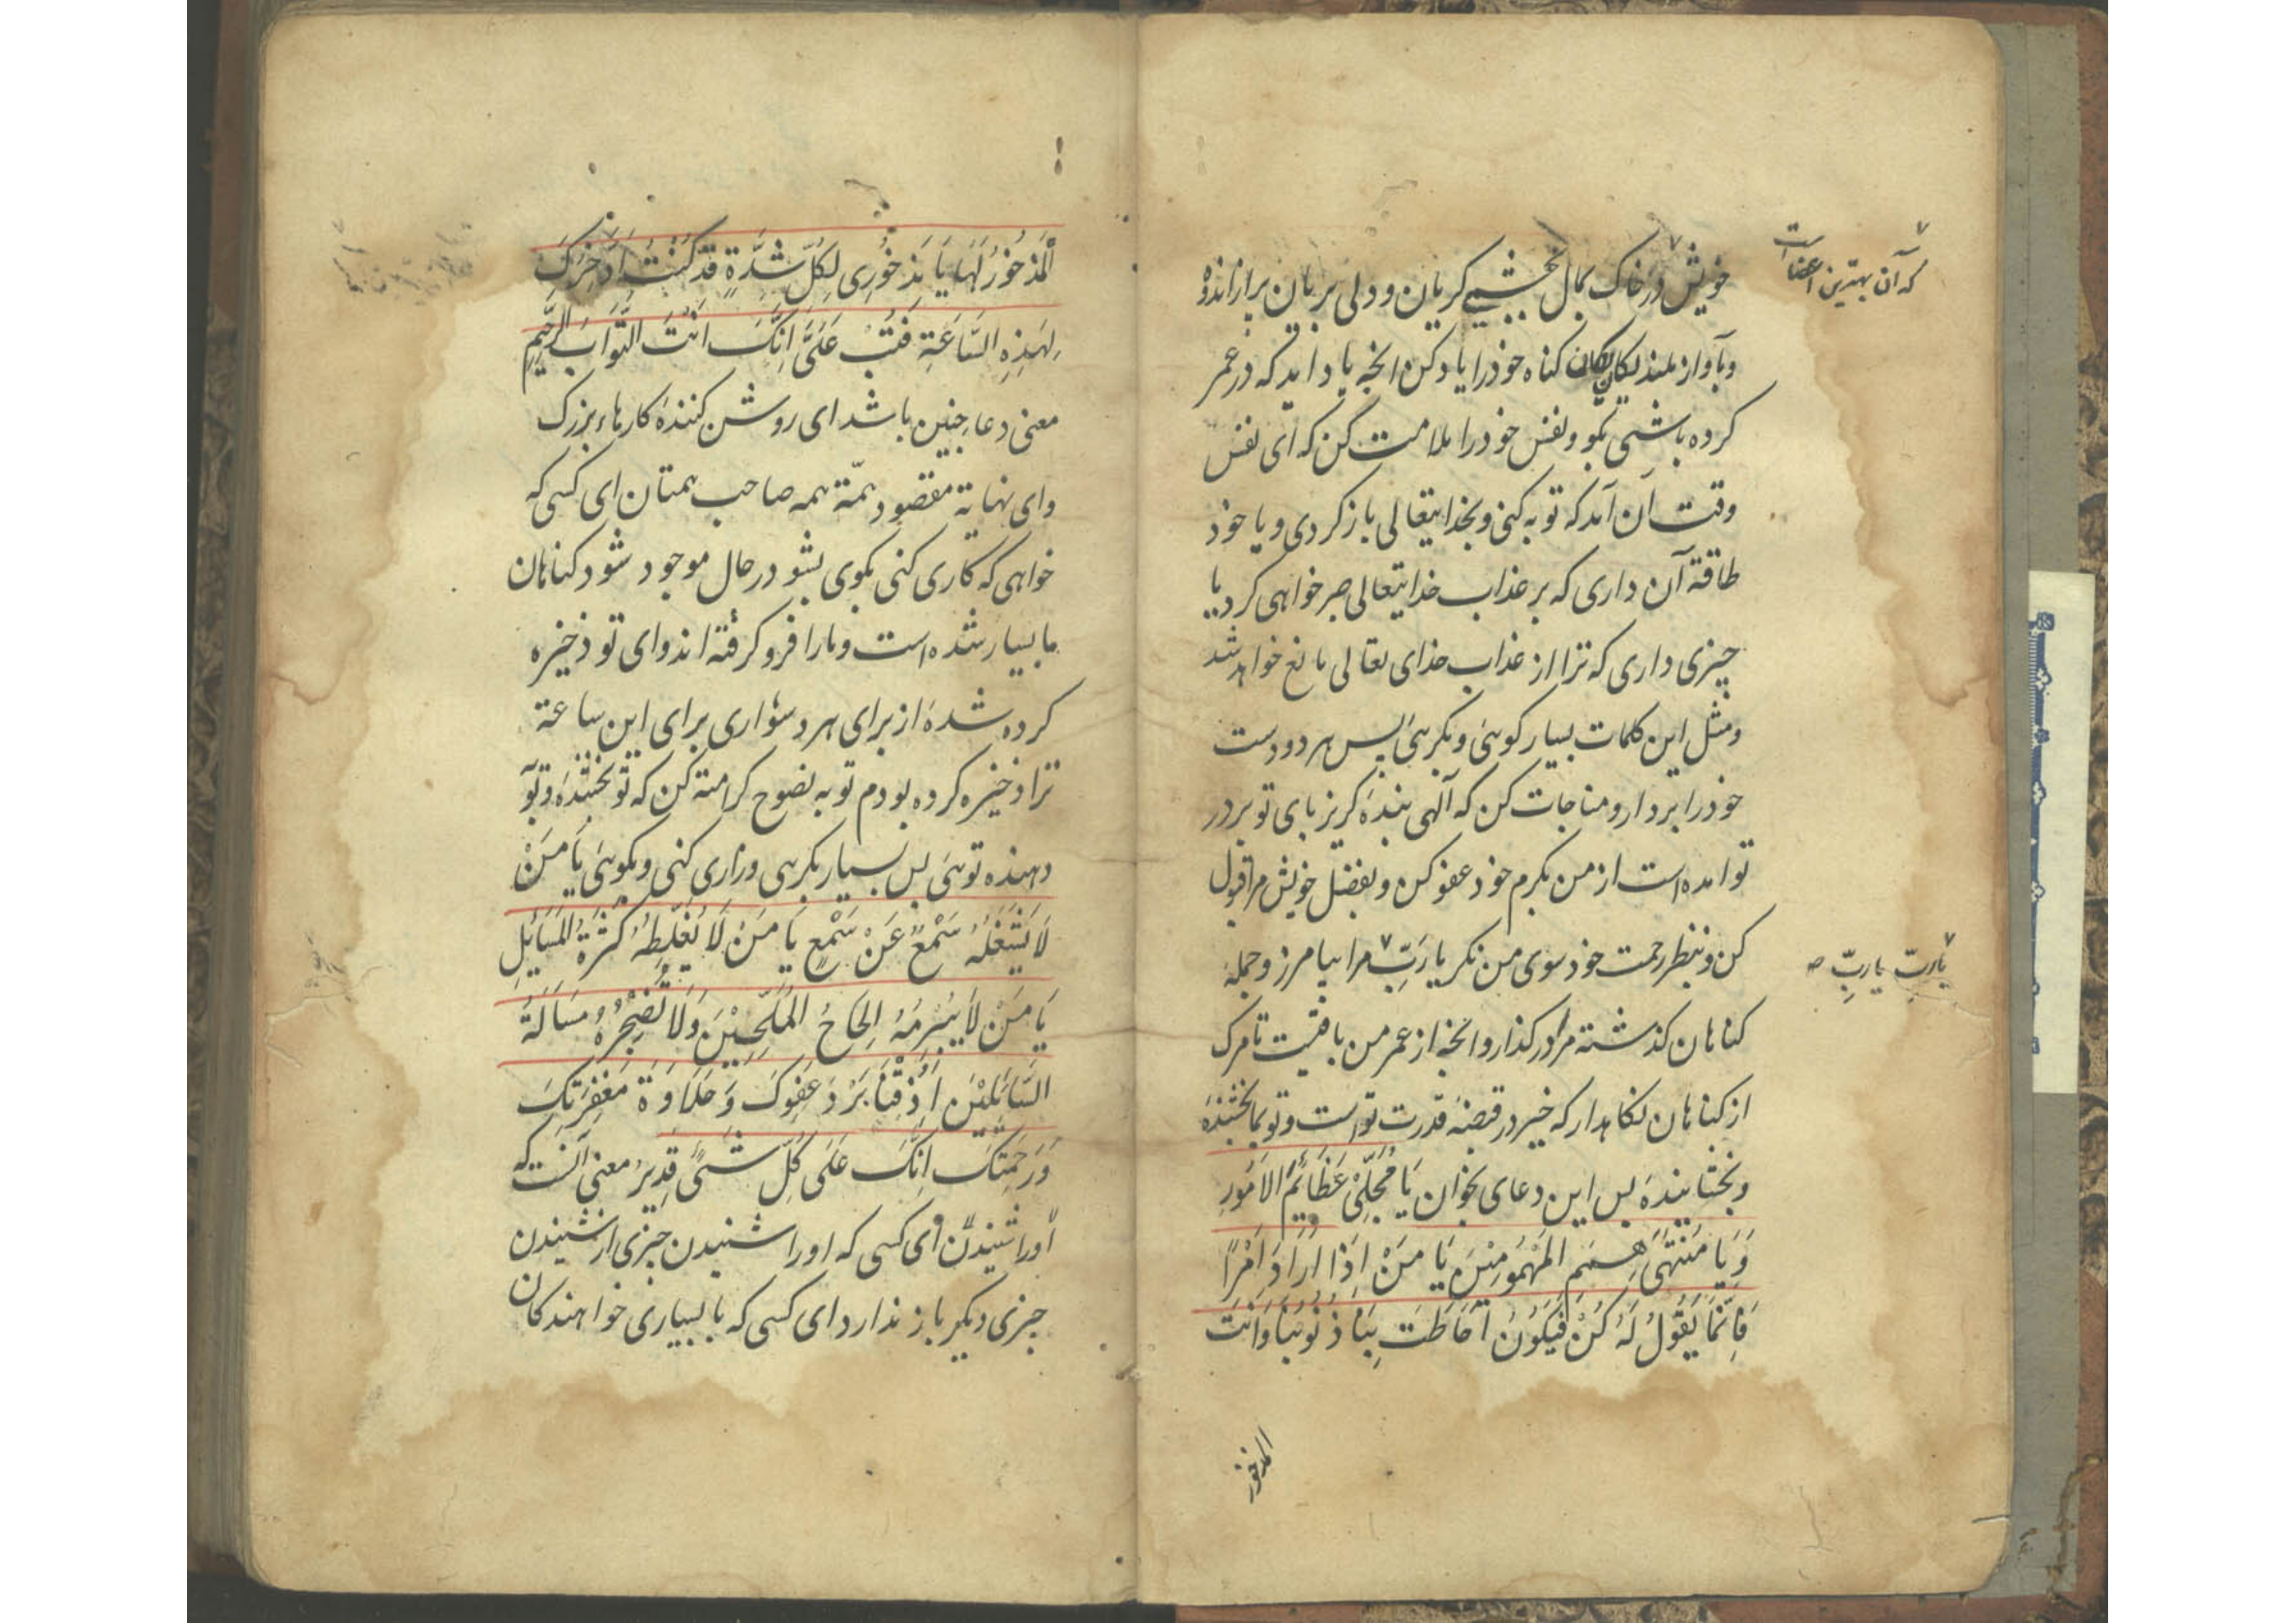 که آن بهترین اعضاست
خویش در خاک بمال بچشمی کریان و دلی بریان پر از اندوه
و بآواز بلند یکان یکان کناه خود را یاد کن انچه یاد اید که در عمر
کرده باشی بکو و نفس خود را ملامت کن که ای نفس
وقت آن آمد که توبه کنی و بخدایتعالی باز کردی و یا خود
طاقة آن داری که بر عذاب خدایتعالی صبر خواهی کرد یا
چیزی داری که ترا از عذاب خدای تعالی مانع خواهد شد
و مثل این کلمات بسیار کوئی و بکرئی پس هر دو دست
خود را بردار و مناجات کن که آلهی بندهٔ کریز پای تو بر در
تو امده است از من بکرم خود عفو کن و بفضل خویش مرا قبول
کن و بنظر رحمت خود سوی من نکر یا رَبِّ مرا بیامرز و جمله
یا ربّ یا ربِّ صه
کناهان کذشته مرا در کذار و انچه از عمر من باقیست تا مرک
از کناهان نکاهدار که خیر در قبضهٔ قدرت تو است و تو بما بخشندهٔ
و بخشایندهٔ پس این دعای بخوان یَا مُجَلِّیْ عَظَائِمُ الاُمُورِ
وَ یَا مُنْتَهَی هِمَمِ المَهْمُومِیْنَ یَا مَنْ اِذَا اَرَادَ اَمْرًا
فَاِنَّمَا یَقُولُ لَهُ کُنْ فَیَکُوْنُ اَحَاطَتْ بِنَا ذُنُوبُنَا وَ اَنْتَ
المذخور
اَلْمَذْخُوْرُ لَهَا یَا مَذْخُوْرِی لِکُلِّ شِدَّةٍ قَدْ کُنْتُ اَدَّخِرُکَ
لِهَذِهِ السَّاعَةِ فَتُبْ عَلَیَّ اِنَّکَ اَنْتَ التَّوَّابُ الرَّحِیْمِ
معنی دعا چنین باشد ای روشن کنندهٔ کارهاء بزرک
و ای نهایة مقصود همّة همه صاحب همتان ای کسی که
خواهی که کاری کنی بکوی بشو در حال موجود شود کناهان
ما بسیار شده است و ما را فرو کرفته اند و ای تو ذخیره
کرده شدهٔ از برای هر دشواری برای این ساعة
ترا ذخیره کرده بودم توبه نصوح کرامة کن که تو بخشندهٔ و توبه
دهنده توئی پس بسیار بکرئی و زاری کنی و بکوئی یَا مَنْ
لَا یَشْغَلُهُ سَمْعٌ عَنْ سَمْعٍ یَا مَنْ لَا یُغَلِّطُهُ کَثْرَةُ المَسَائِلِ
یَا مَنْ لَا یُبْرِمُهُ اِلْحَاحُ المُلِحِّیْنَ وَ لَا تُضْجِرُهُ مَسْاَلَةُ
السَّائِلِیْنَ اَذِقْنَا بَرْدَ عَفْوِکَ وَ حَلَاوَةَ مَغْفِرَتِکَ
وَ رَحْمَتِکَ اِنَّکَ عَلَی کُلِّ شَیْءٍ قَدِیرٌ معنی آنست که
او را شنیدن ای کسی که او را شنیدن چیزی از شنیدن
چیزی دیکر باز ندارد ای کسی که با بسیاری خواهندکان